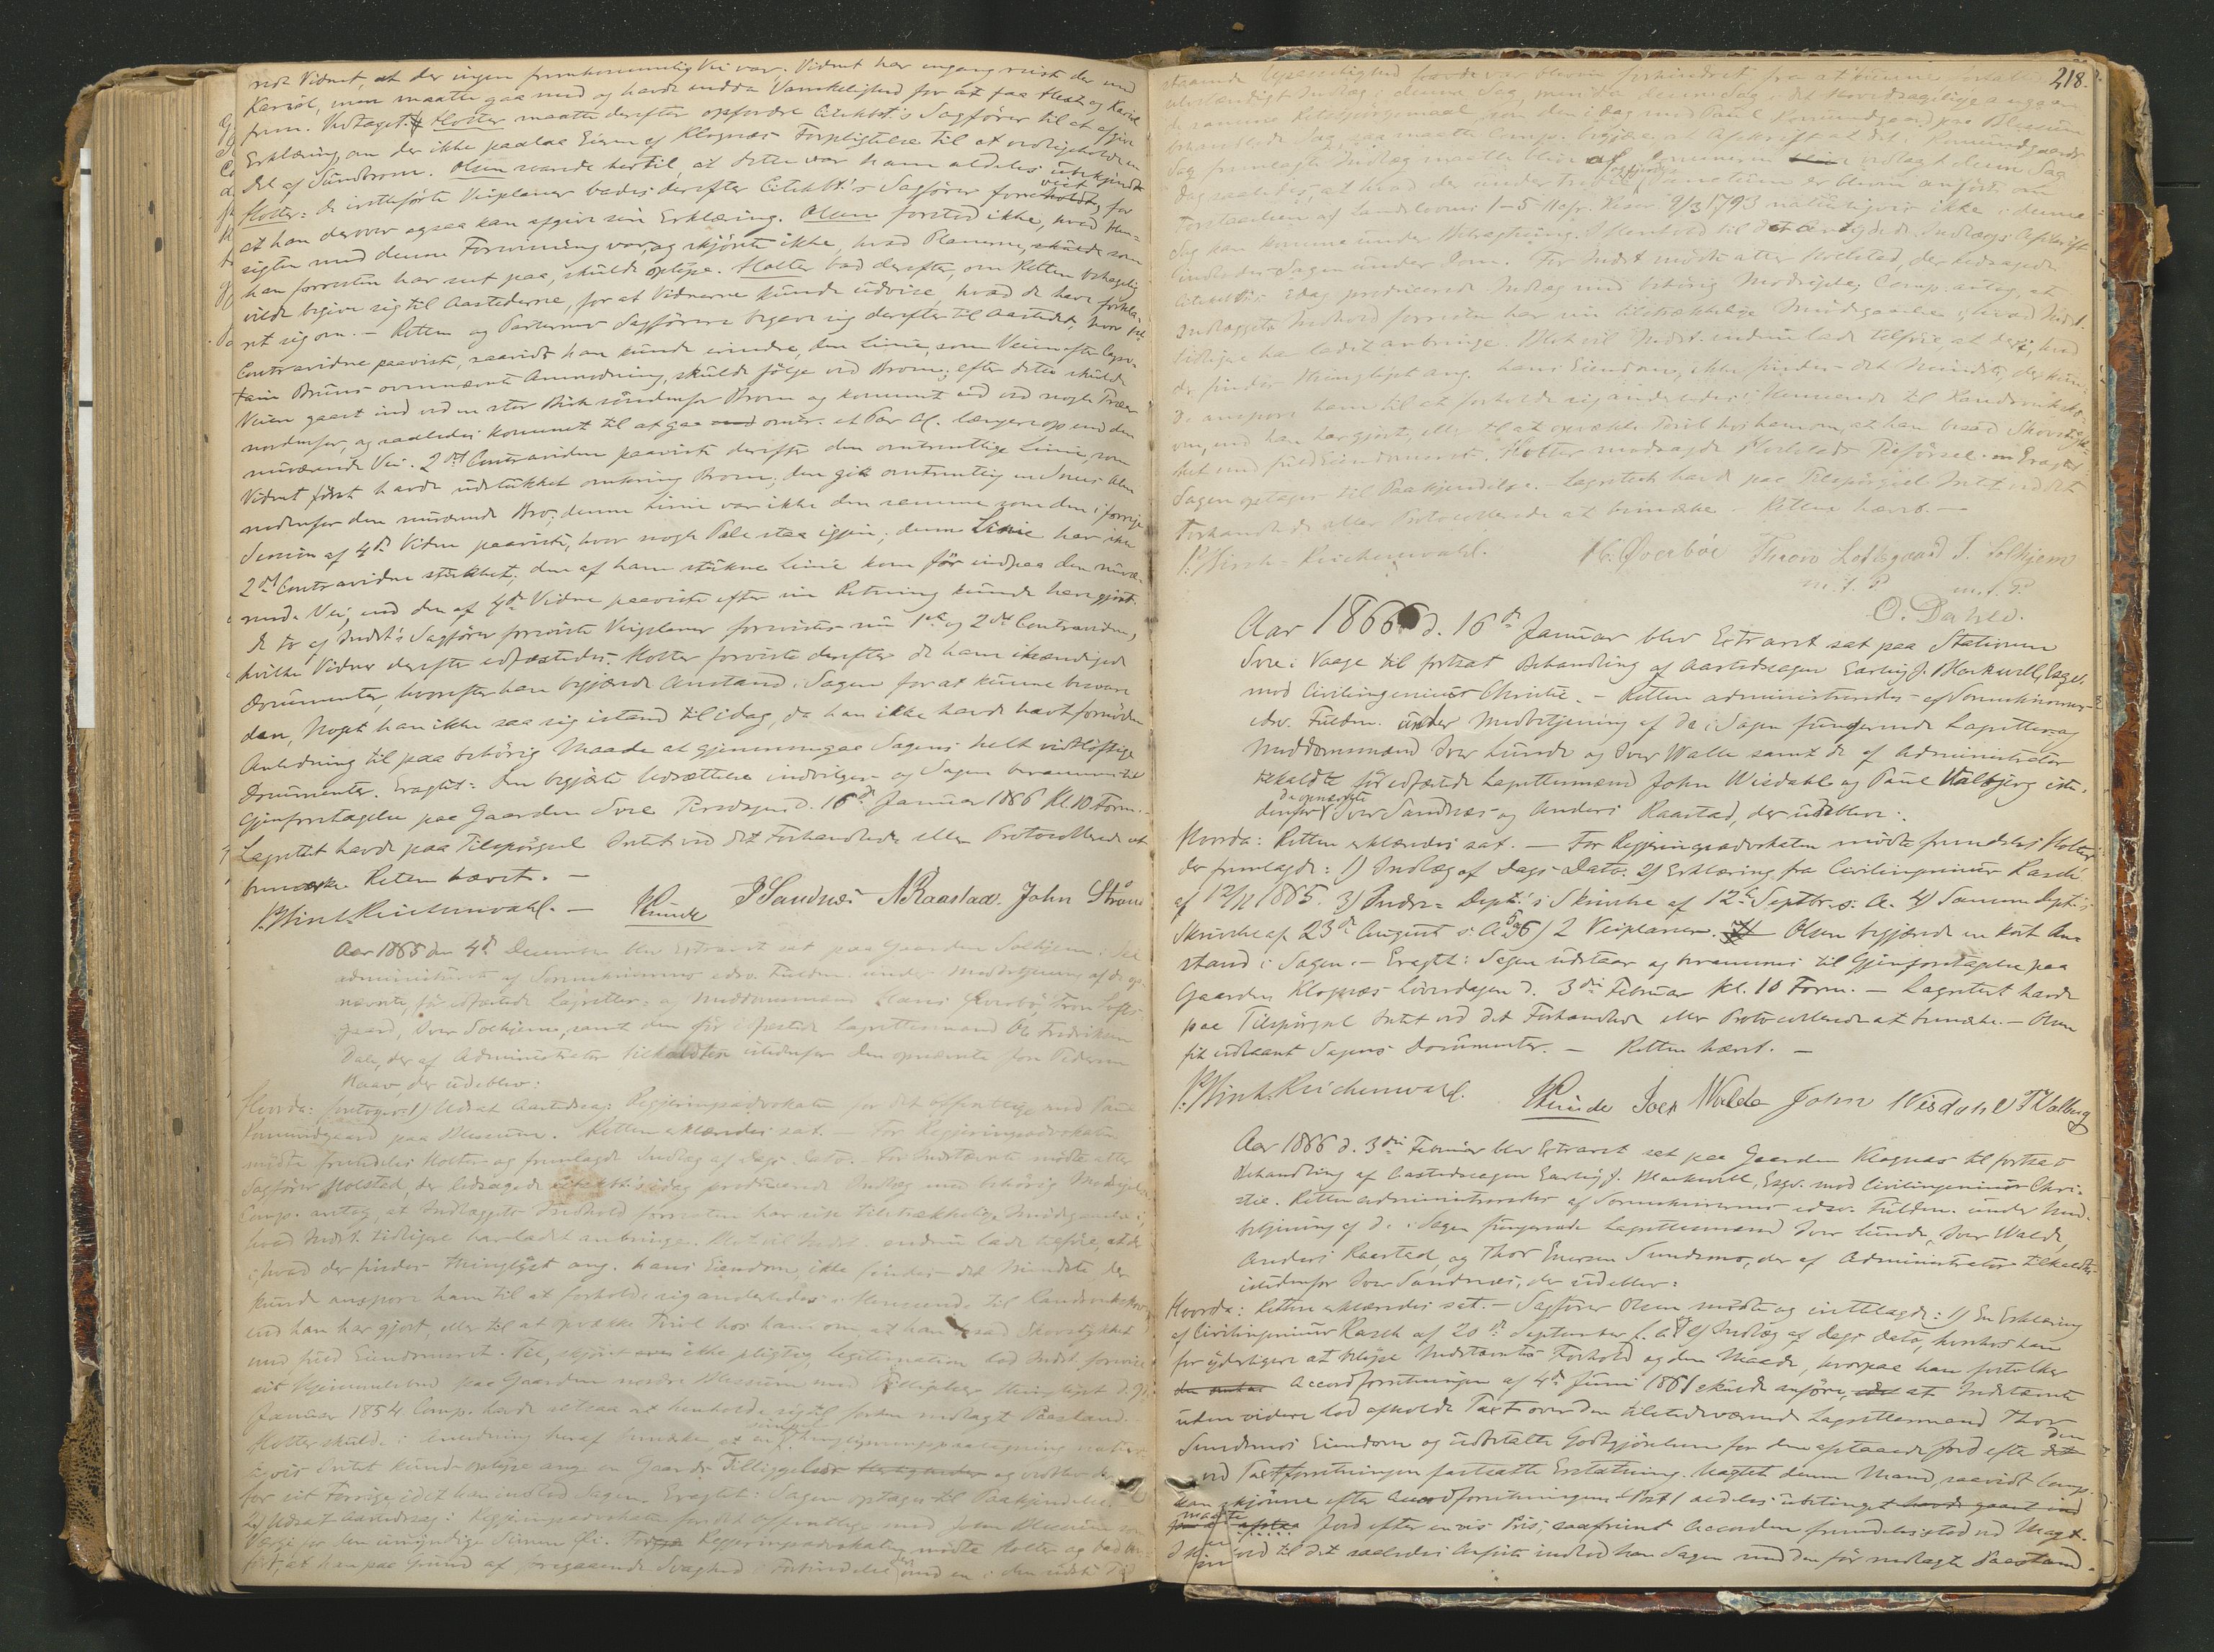 nede Vidnet, at der ingen fremkommelig Vei var; Vidnet har engang reist der med
Kariol, men maatte gaa med og havde endda Vanskelighed for at faa Hest og Kariol
frem. Vedtaget. Holter maatte derefter opfordre Citchbt.'s Sagfører til at afgive
Erklæring, om der ikke paalaa Eieren af Klognæs Forpligtelse til at vedligeholde en
Del af Sundbroen. Olsen svarede hertil, at dette var ham aldeles ubekjendt
Holter: de irettefførte Veiplaner bades derefter Citchbt.'s Sagfører foreviist, for
at han derover ogsaa kan afgive sin Erklæring. Olsen forstod ikke, hvad Hen-
sigten med denne Forevisning var, og skjönte ikke, hvad Planerne, som
han forresten har seet paa, skulde oplyse. Holter bad derefter, om Retten behagelig
vilde begive sig til Aastederne, for at Vidnerne kunde udvise, hvad de have forkla-
ret sig om. - Retten og Parternes Sagförere begave sig derefter til Aastedet, hvor
Contravidne paaviste, saavidt han kunde erindre, den Linie, som Veien efter Cap-
tain Bruns ovennævnte Anvendning, skulde fölge ved Broen; efter dette skulde
Veien gaaet ind ved en stor Birk söndenfor Broen og kommet ud ved nogle Træer
nordenfor, og saaledes kommet til at gaa omtr. et Par Al. længere op end den
nuværende Vei. 2det Contravidne paaviste derefter den omtrentlige Linie, som
Vidnet först havde udstukket omkring Broen; den gik omtrentlig en Snees Alen
nedenfor den nuværende Bro; denne Linie var ikke den samme som den i forrige
Session af 4de Vidne paaviste, hvor nogle Pæle staa igjen; denne Linie har ikke
2det Contravidne stukket; den af ham stukne Linie kom för indpaa den nuvæ-
rende Vei, end den af 4de Vidne paaviste efter sin Retning kunde have gjort.
De to af Indst's Sagförer foreviste Veiplaner forevistes nu 1ste og 2det Contravidne,
hvilke Vidner derefter edfæstedes. Holter foreviste derefter de ham ihændigede
Documenter, hvorefter han begjærede Anstand i Sagen for at kunne besvare
den, Noget han ikke saa sig istand til idag, da han ikke havde havt fornöden
Anledning til paa behörig Maade at gjennemgaa Sagens helt vidtlöftige
Documenter. Eragtet: Den begjærte Udsættelse indvilges og Sagen berammes til
Gjenforetagelse paa Gaarden Sve Tirsdagen d. 16de Januar 1866 Kl. 10 Form.
Lagrettet havde paa Tilspörgsel Intet ved det Forhandlede eller Protocollerede at
bemærke. Retten hævet. -
P. Hirsch-Reichenwahl. - Lunde I Sandnes A Raastad. John Ström
Aar 1865 den 4de December blev Extraret sat paa Gaarden Solhjem i Sel
administreret af Sorenskriverens edsv. Fuldm. under Medbetjening af de op-
nævnte, för edfæstede Lagrettes- og Meddomsmænd Hans Överböe, Tron Lofts-
gaard, Iver Solhjem, samt den för edfæstede Lagrettesmand Ole Fredriksen
Dale, der af Administrator tilkaldtes istedenfor den opnævnte Jon Pedersen
Raav, der udeblev:
Hvorda: foretoges: 1) Udsat Aastedssag: Regjeringsadvokaten for det offentlige mod Paul
Romundgaard paa Blessum. Retten erklæredes sat. - For Regjeringsadvokaten
mödte fremdeles Holter og fremlagde Indlæg af Dags Dato. - For Indstævnte mödte atter
Sagförer Holstad, der ledsagede Citchbt's idag producerede Indlæg med behörig Modsigelse.
Comp. antog, at Indlæggets Indhold forresten har sin tilstrækkelige Imödegaaelse i,
hvad Indst. tidligere har ladet anbringe. Blot vil Indst. endnu lade tilföie, at der
i, hvad der findes thinglyst ang. hans Eiendom, ikke findes det Mindste, der
kunde anspore ham til at forholde sig anderledes i Henseende til Randsviksskov
end han har gjort, eller til at opvække Tvivl hos ham om, at han besad Skovstykket
med fuld Eiendomsret. Til, skjönt ikke pligtig, Legitimation lod Indst. forevise
sit Hjemmelsbrev paa Gaarden nordre Blessum med Tilliggelse thinglyst d. 9de
Januar 1854 Comp. havde alsaa at henholde sig til forhen nedlagt Paastand.
Holter skulde i Anledning heraf bemærke, at en simpel thinglysningspaategning natur-
ligvis Intet kunde oplyse ang. en Gaards Tilliggelser og vedblev der-
for sit Forrige idet han indlod Sagen. Eragtet: Sagen optages til Paakjendelse.
2) Udsat Aastedssag: Regjeringsadvokaten for det offentlige mod John Blessum som
Værge for den umyndige Simen Öi. For Regjeringsadvokaten mödte Holter og bad an-
fört, at han paa Grund af foregaaende Svaghed i Forbindelse med en i den sidste Tid
218.
staaende Upasselighed havde var bleven forhindret fra at kunne forfatte
udstændigt Indlæg i denne Sag, men da denne Sag i det Hovedsagelige angaar
de samme Retsspörgsmaal som den i Dag mod Paul Romundgaard paa Blessum
behandlede Sag, saa maatte Comp. begjære en Afskrift af det i Romundgaards
Sag fremlagte Indlæg maatte blive af Comp. vedlagt denne Sag
dog saaledes, at hvad der under tredie Punctum er deri anfört om
Forstaaelsen af Landslovens 1-5-11 cfr. Reser. 9/3 1793 naturligvis ikke i denne
Sag kan komme under Betragtning. I Henhold til det antydede Indlægs Afskrift
indlodes Sagen under Dom. For Indst mödte atter Holstad, der ledsagede
Citchbt's idag producerede Indlæg med behörig Modsigelse; Comp. antog, at
Indlæggets Indhold forresten har sin tilstrækkelige Imödegaaelse i, hvad Indst.
tidligere har ladet anbringe. Blot vil Indst. endnu lade tilföie, at der i, hvad
der findes thinglyst ang. hans Eiendom, ikke findes det Mindste, der kun-
de anspore ham til at forholde sig anderledes i Henseende til Randsviksko-
ven, end han har gjort, eller til at opvække Tvivl hos ham om, at han besad Skovstyk-
ket med fuld Eiendomsret. Holter modsagde Holstads Tilförsel. Eragtet
Sagen optages til Paakjendelse. Lagrettet havde paa Tilspörgsel Intet ved det
Forhandlede eller Protocollerede at bemærke. Retten hævet. -
P. Hirsch-Reichenwahl. H. Øverbøe Thron Loftsgaard I. Solhjem
m. f. P. m. f. P.
O. Dahle.
Aar 1866 d. 16de Januar blev Extraret sat paa Stationen
Sve i Vaage til fortsat Behandling af Aastedssagen Earling J. Markwell, Esqv.
mod Civilingeniør Christie. - Retten administreredes af Sorenskriverens
edsv. Fuldm. under Medbetjening af de i Sagen fungerende Lagrettes- og
Meddomsmænd Iver Lunde og Iver Walle samt de af Administrator
tilkaldte för edfæstede Lagrettesmænd John Wisdahl og Paul Valbjerg iste-
denfor de opnævnte Iver Sandnæs og Anders Raastad, der udeblev:
Hvorda: Retten erklæredes sat. - For Regjeringsadvokaten mödte fremdeles Holter
der fremlagde: 1) Indlæg af Dags Dato. 2) Erklæring fra Civilingeniør Rasch
af 12/11 1865. 3) Indre-Dept.'s Skrivelse af 12te Septbr. s. A. 4) Samme Dept.'s
Skrivelse af 23de August s. A. 5 og 6) 2 Veiplaner. Olsen begjærede en kort An-
stand i Sagen. - Eragtet: Sagen udstaar og berammes til Gjenforetagelse paa
Gaarden Klognæs Löverdagen d. 3die Februar Kl. 10 Form. - Lagrettet havde
paa Tilspörgsel Intet ved det Forhandlede eller Protocollerede at bemærke. - Olsen
fik udlaant Sagens Documenter. - Retten hævet. -
P. Hirsch-Reichenwahl. Lunde Iver Walde John Wisdahl P Valberg
Aar 1866 d. 3die Februar blev Extraret sat paa Gaarden Klognæs til fortsat
Behandling af Aastedssagen Earling J. Markwell, Esqv. mod Civilingeniør Chri-
stie. Retten administreredes af Sorenskriverens edsv. Fuldm. under Med-
betjening af de i Sagen fungerende Lagrettesmænd Iver Lunde, Iver Walde,
Anders Raastad, og Thor Enersen Sundsmo, der af Administrator tilkaldtes
istedenfor Iver Sandnæs, der udeblev:
Hvorda: Retten erklæredes sat. - Sagförer Olsen mödte og irettelagde: 1) En Erklæring
af Civilingeniør Rasch af 20de September f. A. 2) Indlæg af Dags Dato, hvorhos han
for yderligere at belyse Indstævntes Forhold og den Maade, hvorpaa han fortolker
Accordforretningen af 4de Juni 1861 skulde anföre, at Indstævnte
uden videre lod afholde Taxt over den tilstedeværende Lagrettesmand Thor
Sundsmos Eiendom og udbetalte Godtgjörelsen for den afstaaede Jord efter den
ved Taxtforretningen fastsatte Erstatning. Uagtet denne Mand, saavidt Comp.
kan skjönne efter Accordforretningens Post 1 aldeles ubetinget havde gaaet ind
maatte Jord efter en vis Pris, saafremt Accorden fremdeles stod ved Magt.
I Henhold til det saaledes Anförte indlod han Sagen med den för nedlagte Paastand.